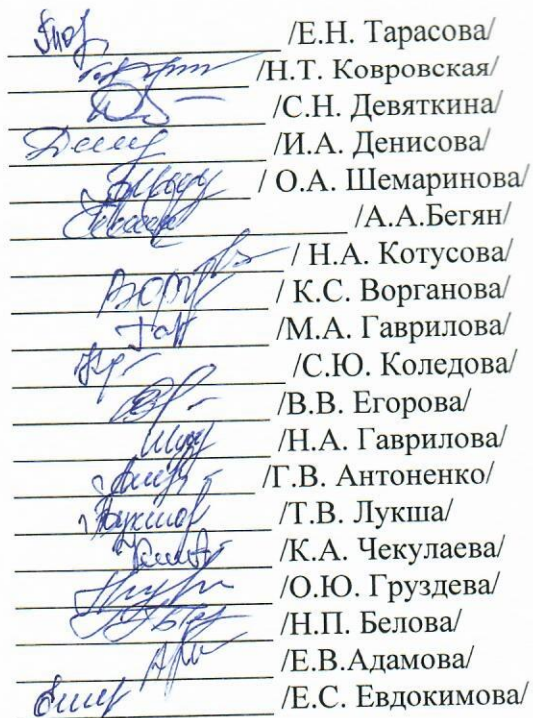 /Е.Н. Тарасова/
/Н.Т. Ковровская/
/С.Н. Девяткина/
/И.А. Денисова/
/ О.А. Шемаринова/
/А.А.Бегян/
/ Н.А. Котусова/
/ К.С. Ворганова/
/М.А. Гаврилова/
/С.Ю. Коледова/
/В.В. Егорова/
/Н.А. Гаврилова/
/Г.В. Антоненко/
/Т.В. Лукша/
/К.А. Чекулаева/
/О.Ю. Груздева/
/Н.П. Белова/
/Е.В.Адамова/
/Е.С. Евдокимова/